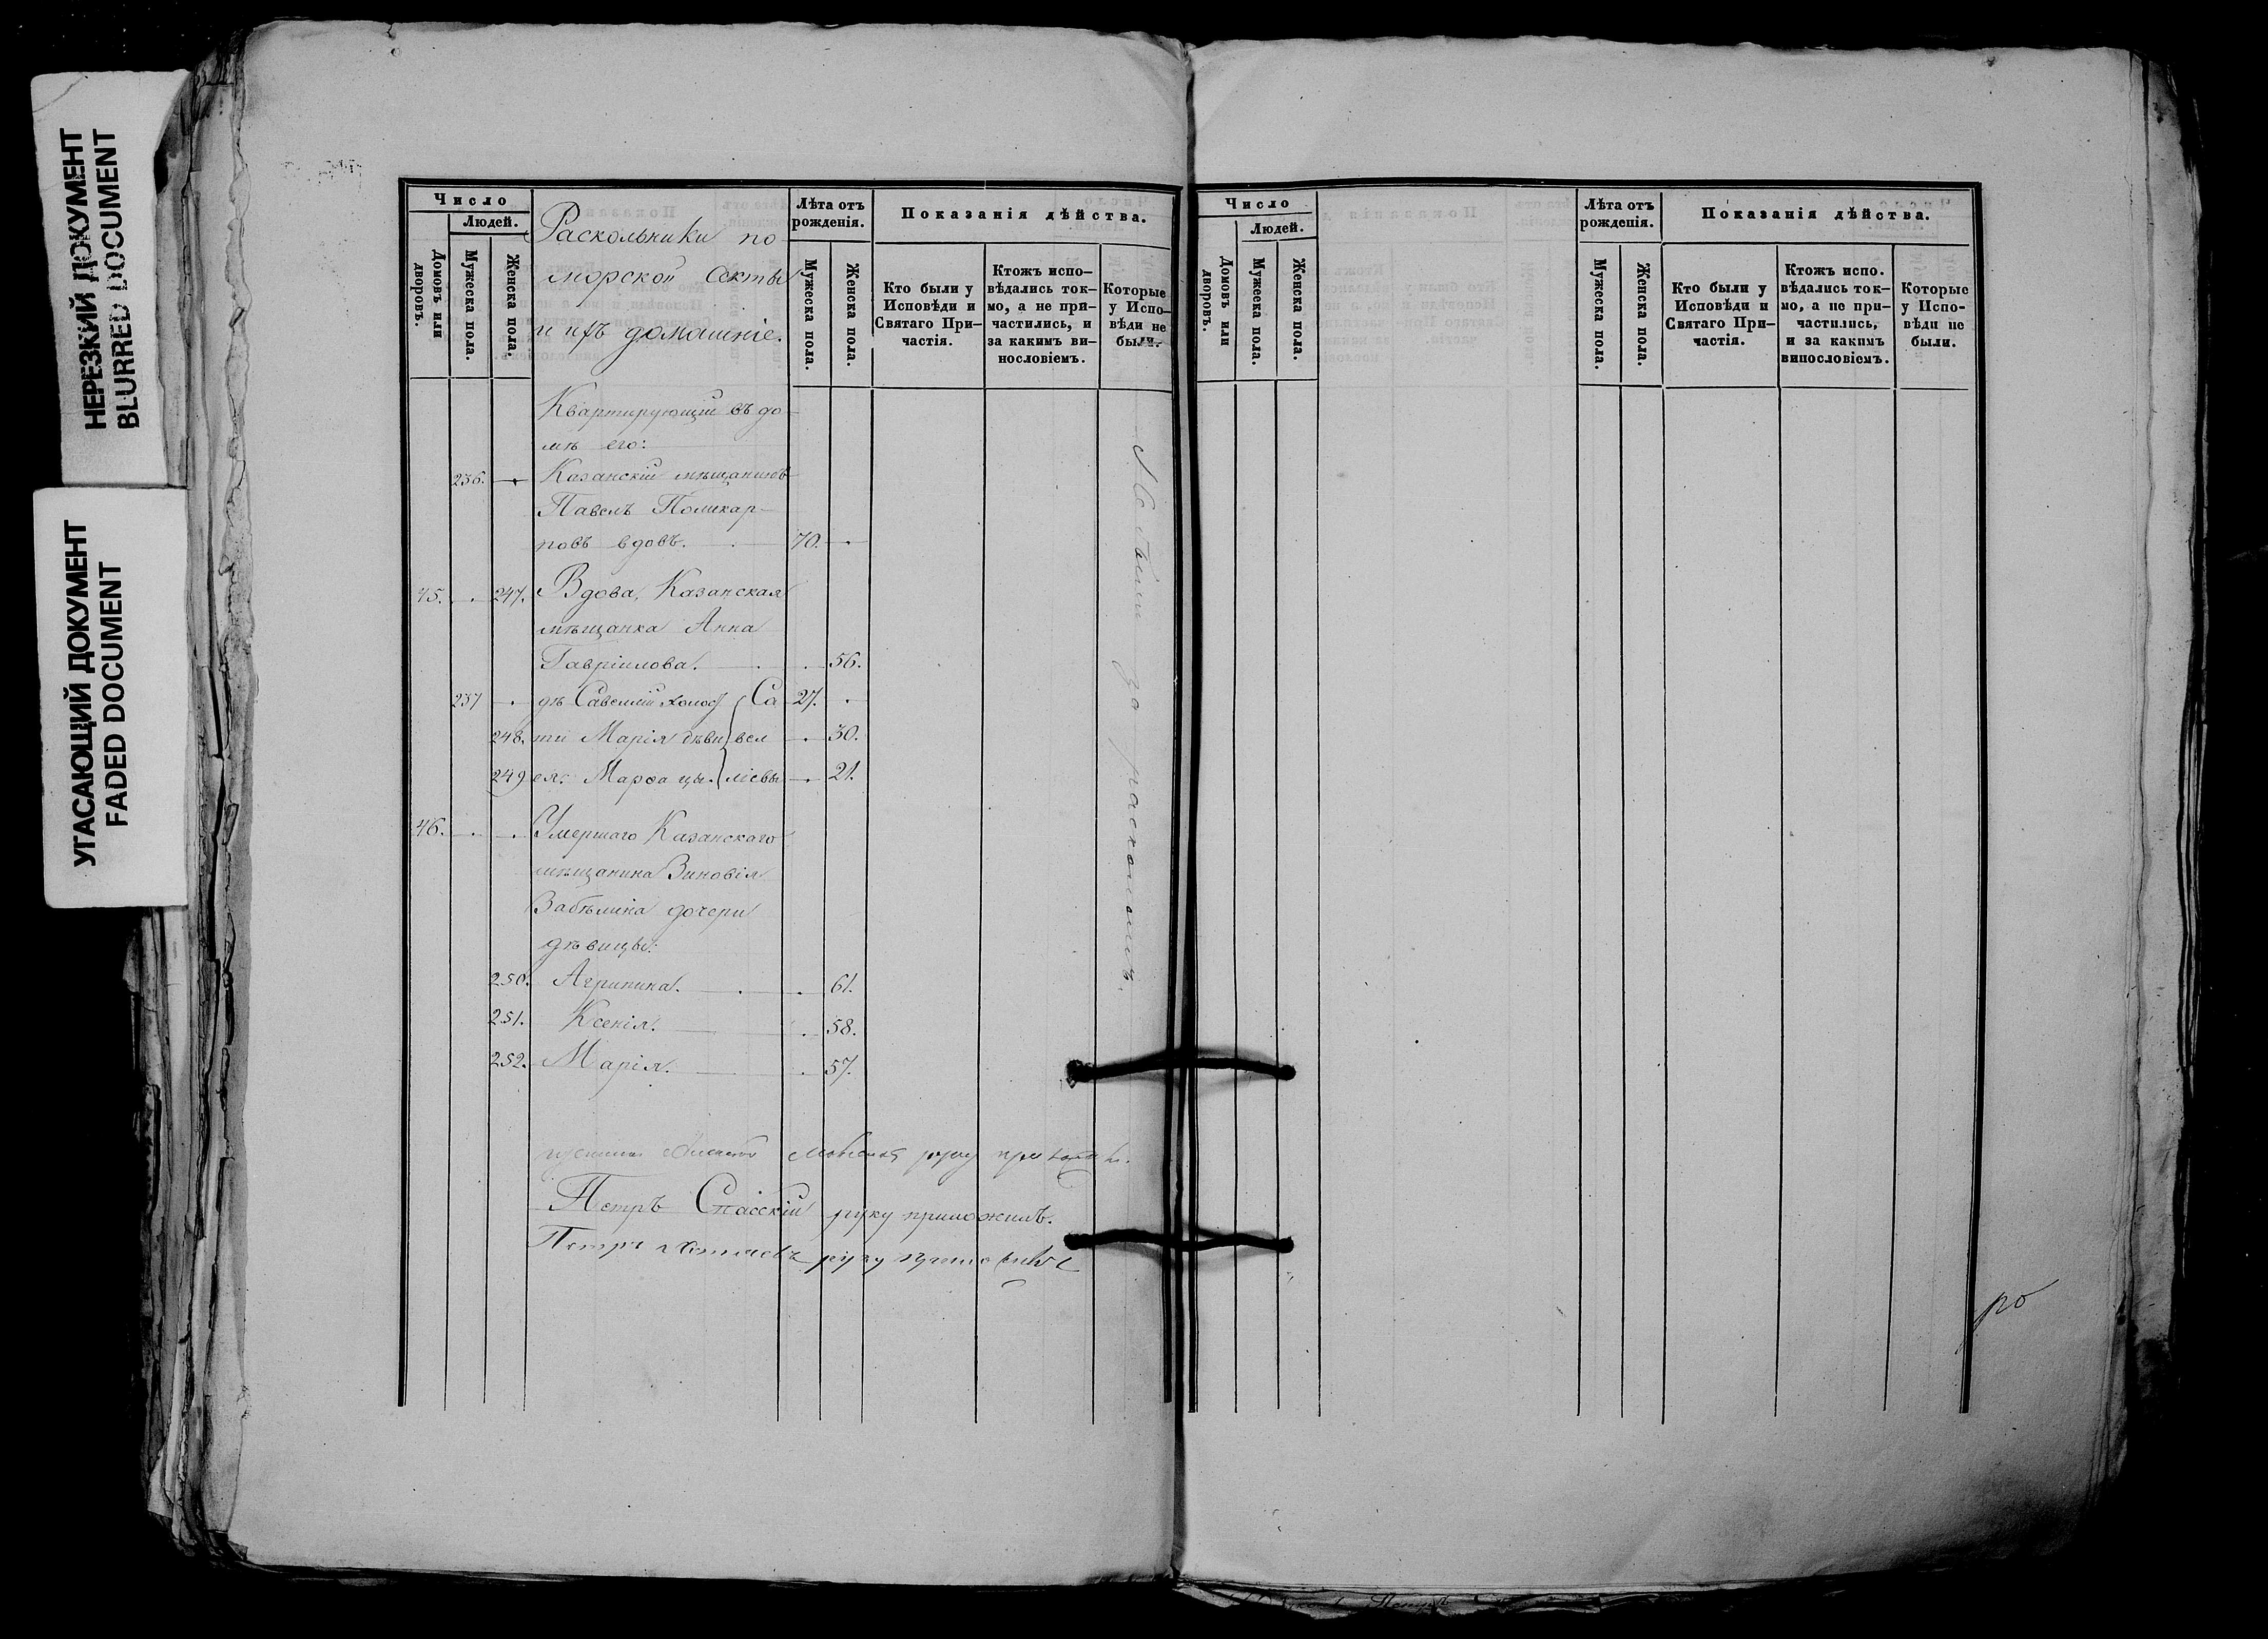 НЕРЕЗКИЙ ДОКУМЕНТ
BLURRED DOCUMENT
УГАСАЮЩИЙ ДОКУМЕНТ
FADED DOCUMENT
Число
Людей.
Домовъ или дворовъ.
Мужеска пола.
Женска пола.
Раскольники по-
морской секты
и ихъ домашніе.
Лѣта отъ рожденія.
Мужеска пола.
Женска пола.
Показанія дѣйства.
Кто были у Исповѣди и Святаго При-частія.
Ктожъ испо-вѣдались ток-мо, а не при-частились, и за какимъ ви-нословіемъ.
Которые у Испо-вѣди не были.
Квартирующій въ до-
мѣ его:
236. Казанскій мѣщанинъ
Павелъ Поликар-
повъ вдовъ. 70.
75. 247. Вдова, Казанская
мѣщанка Анна
Гавріилова. 56.
237 дѣ Савелій холос Са 27.
248. ти Марія дѣви вел 30.
249 ея: Марѳа цы. ліевы 21.
76. Умершаго Казанскаго
мѣщанина Зиновія
Забѣлина дочери
дѣвицы:
250. Агрипина. 61.
251. Ксенія. 58.
252. Марія. 57.
Не были за расколомъ.
руку
Петръ Спасскій руку приложилъ.
Петръ руку приложилъ
Число
Людей.
Домовъ или дворовъ.
Мужеска пола.
Женска пола.
Лѣта отъ рожденія.
Мужеска пола.
Женска пола.
Показанія дѣйства.
Кто были у Исповѣди и Святаго При-частія.
Ктожъ испо-вѣдались ток-мо, а не при-частились, и за какимъ винословіемъ.
Которые у Испо-вѣди не были.
ро